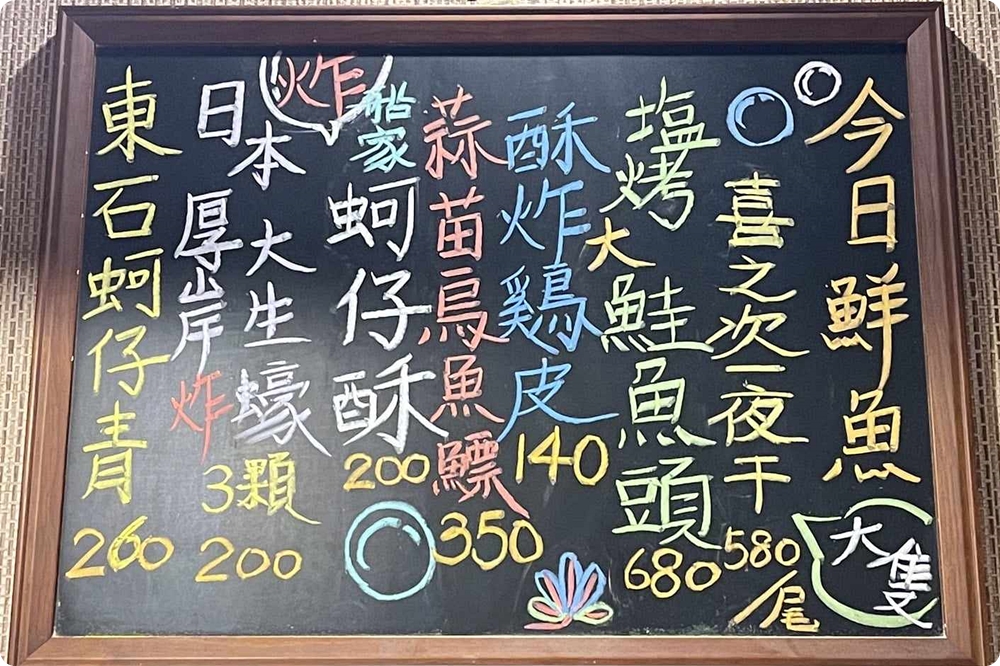 今日鮮魚
大隻
喜之次一夜干
580
尾
塩烤大鮭魚頭
680
酥炸鷄皮
140
蒜苗烏魚鰾
350
船家
蚵仔酥
200
炸
日本大生蠔
厚岸炸
3顆
200
東石蚵仔青
260